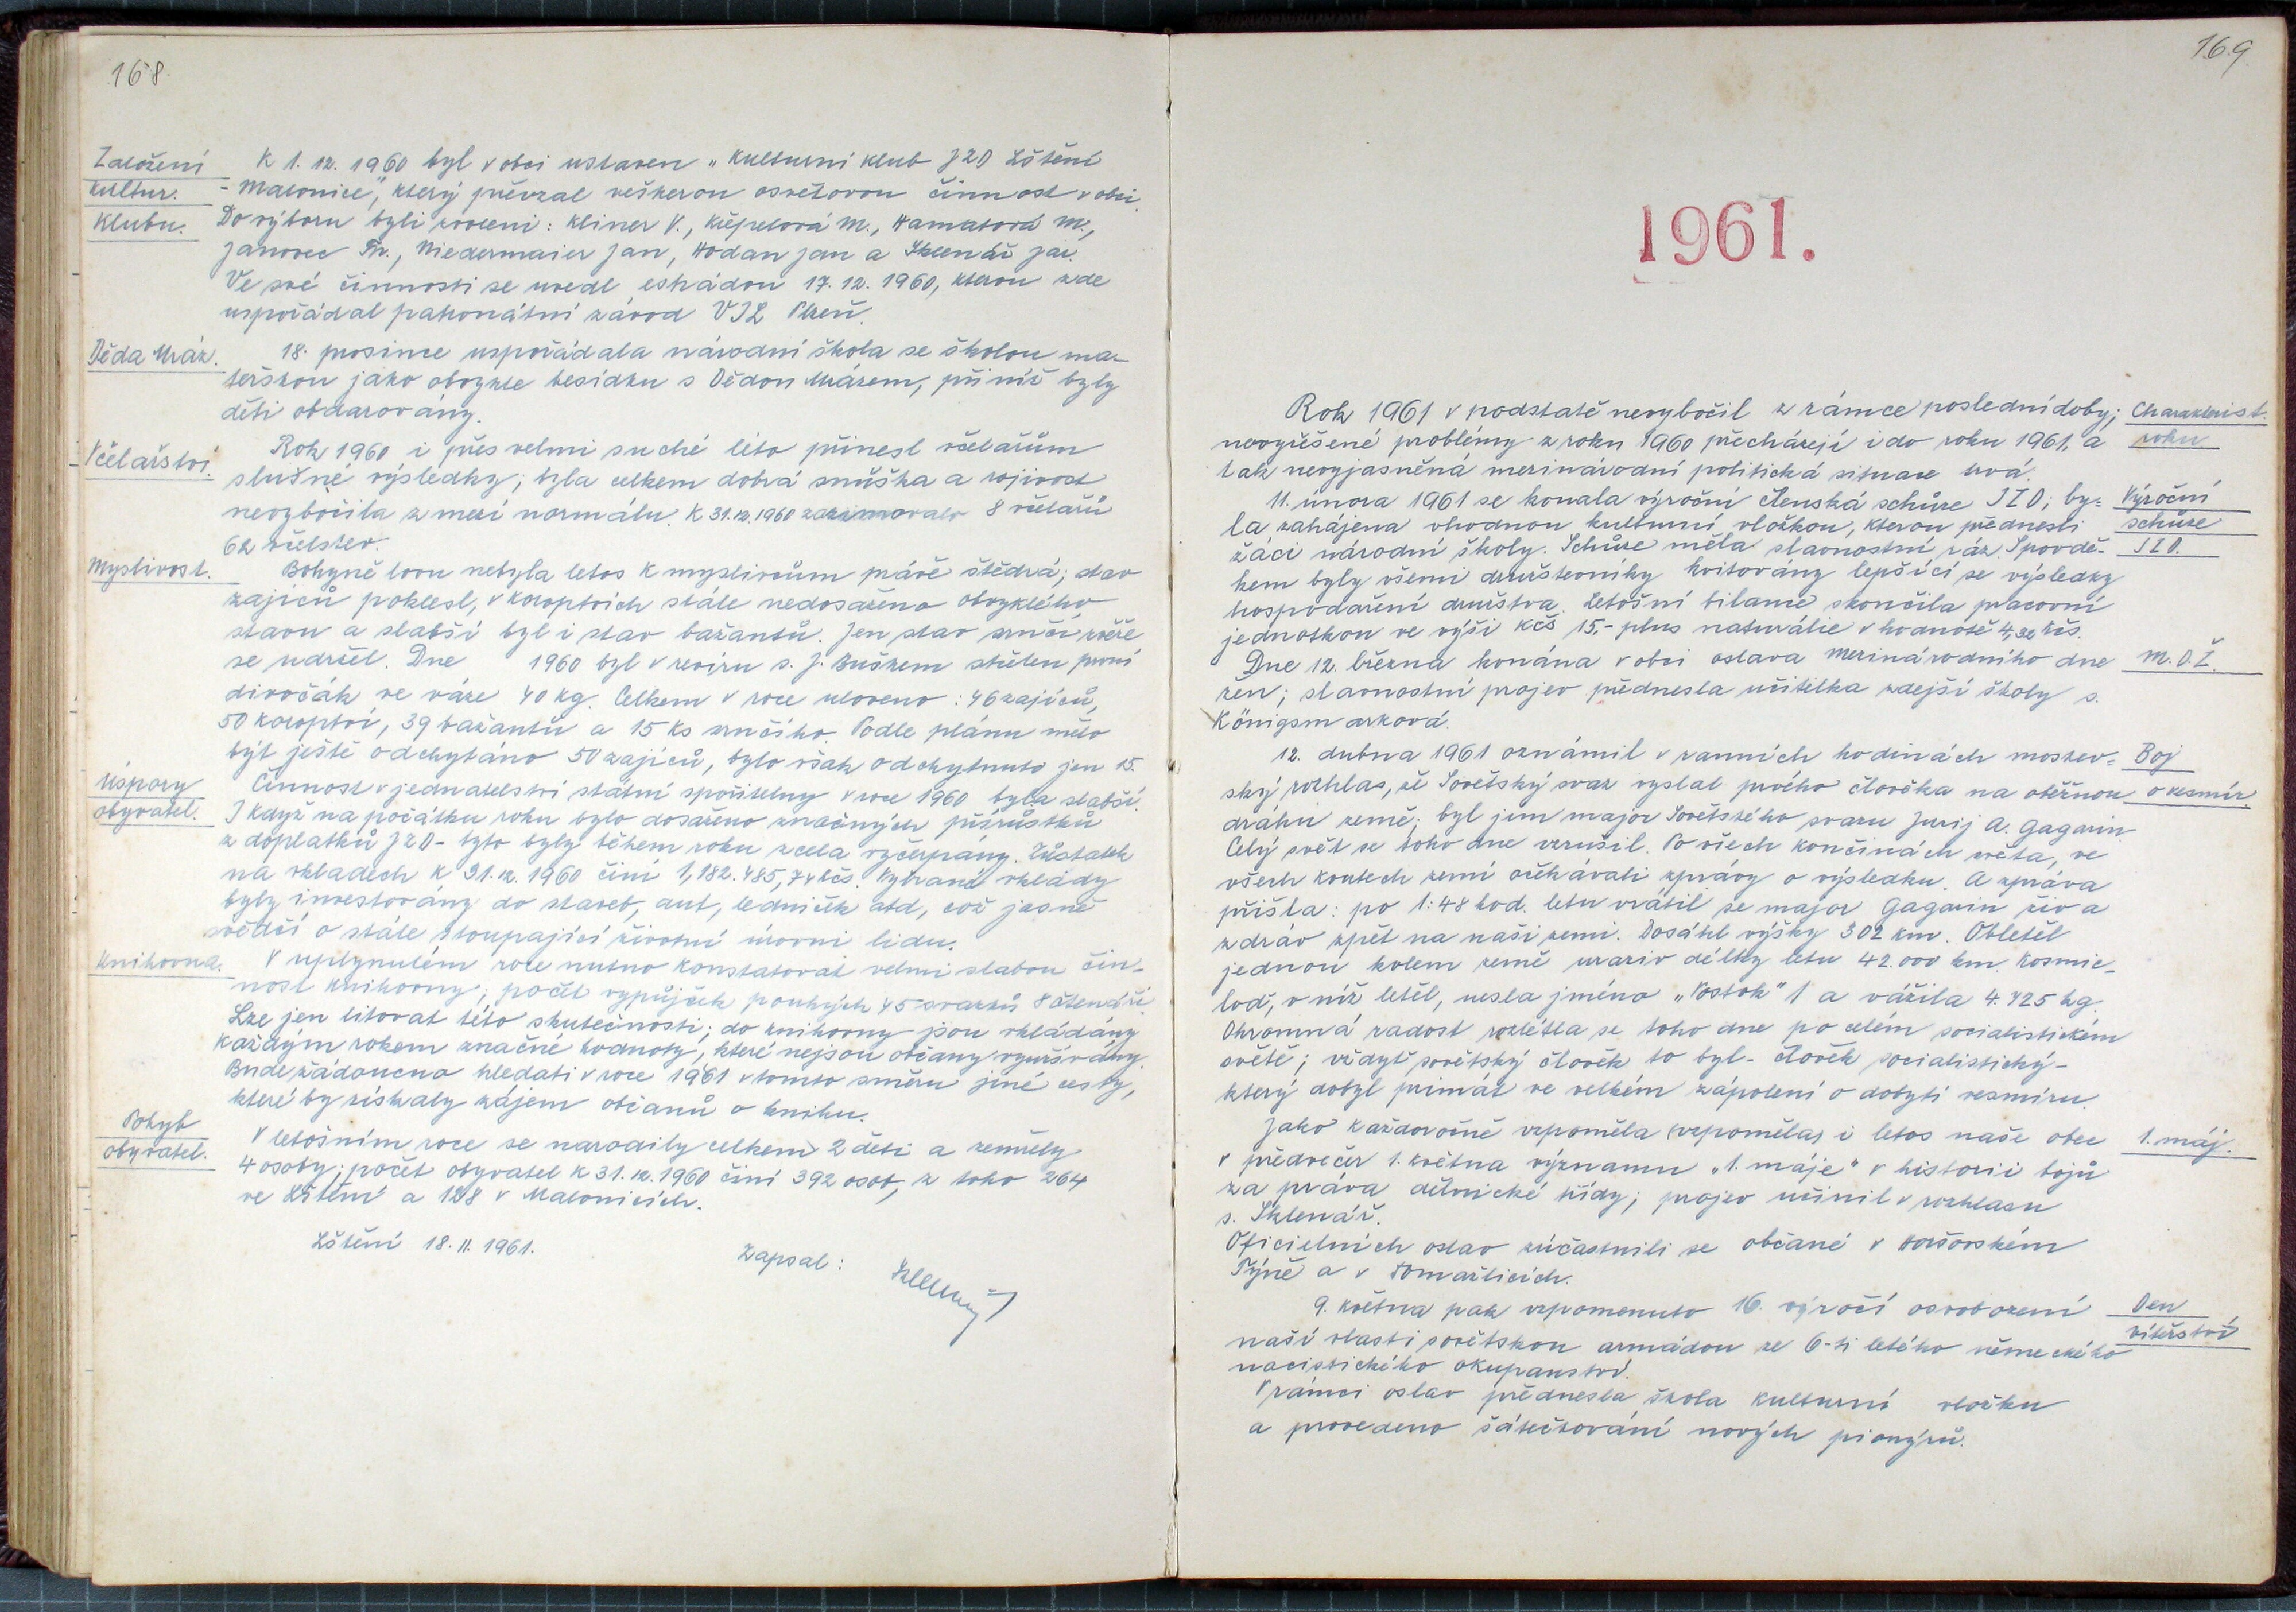 168.
Založení
kultur.
klubu.
K 1. 12. 1960 byl v obci ustaven „Kulturní klub JZD Lštění
- Malonice“, který převzal veškerou osvětovou činnost v obci.
Do výboru byli zvoleni: Kliner V., Křepelová M., Hamatová M.,
Janovec Fr., Niedermaier Jan, Hodan Jan a Sklenář Jar.
Ve své činnosti se uvedl estrádou 17. 12. 1960, kterou zde
uspořádal patronátní závod VIL Plzeň.
Děda Mráz.
18. prosince uspořádala národní škola se školou ma-
teřskou jako obvykle besídku s Dědou Mrázem, při níž byly
děti obdarovány.
Včelařství.
Rok 1960 i přes velmi suché léto přinesl včelařům
slušné výsledky; byla celkem dobrá snůška a rojivost
nevybočila z mezí normálu. K 31. 12. 1960 zazimovalo 8 včelařů
62 včelstev.
Myslivost.
Bohyně lovu nebyla letos k myslivcům právě štědrá; stav
zajíců poklesl, v koroptvích stále nedosaženo obvyklého
stavu a slabší byl i stav bažantů. Jen stav srnčí zvěře
se udržel. Dne 1960 byl v revíru s. J. Buškem střelen první
divočák ve váze 40 kg. Celkem v roce uloveno: 46 zajíců,
50 koroptví, 39 bažantů a 15 ks srnčího. Podle plánu mělo
být ještě odchytáno 50 zajíců, bylo však odchytnuto jen 15.
Úspory
obyvatel.
Činnost v jednatelství státní spořitelny v roce 1960 byla slabší.
I když na počátku roku bylo dosaženo značných přírůstků
z doplatků JZD - byto byly během roku zcela vyčerpány. Zůstatek
na vkladech k 31. 12. 1960 činí 1,182.485,74 Kčs. Vybrané vklady
byly investovány do staveb, aut, ledniček atd, což jasně
svědčí o stále stoupající životní úrovni lidu.
Knihovna.
V uplynulém roce nutno konstatovat velmi slabou čin-
nost knihovny; počet vypůjček pouhých 45 svazků 8 čtenáři.
Lze jen litovat této skutečnosti; do knihovny jsou vkládány
každým rokem značné hodnoty, které nejsou občany využívány.
Bude žádoucno hledati v roce 1961 v tomto směru jiné cesty,
které by získaly zájem občanů o knihu.
Pohyb
obyvatel.
V letošním roce se narodily celkem 2 děti a zemřely
4 osoby; počet obyvatel k 31. 12. 1960 činí 392 osob, z toho 264
ve Lštění a 128 v Malonicích.
Lštění 18. 11. 1961.
Zapsal:
169.
1961.
Rok 1961 v podstatě nevybočil z rámce poslední doby;
nevyřešené problémy z roku 1960 přecházejí i do roku 1961, a
tak nevyjasněná mezinárodní politická situace trvá.
Charakterist.
roku
11. února 1961 se konala výroční členská schůze JZD; by=
la zahájena vhodnou kulturní vložkou, kterou přednesli
žáci národní školy. Schůze měla slavnostní ráz. S povdě-
kem byly všemi družstevníky kvitovány lepšící se výsledky
hospodaření družstva. Letošní bilance skončila pracovní
jednotkou ve výši Kčs 15,- plus naturálie v hodnotě 4,32 Kčs.
Výroční
schůze
JZD.
Dne 12. března konána v obci oslava Mezinárodního dne
žen; slavnostní projev přednesla učitelka zdejší školy s.
Königsmarková.
M. D. Ž.
12. dubna 1961 oznámil v ranních hodinách moskev=
ský rozhlas, že Sovětský svaz vyslal prvého člověka na oběžnou
dráhu země; byl jim major Sovětského svazu Jurij A. Gagarin.
Celý svět se toho dne vzrušil. Po všech končinách světa, ve
všech koutech zemí očekávali zprávy o výsledku. A zpráva
přišla: po 1:48 hod. letu vrátil se major Gagarin živ a
zdráv zpět na naši zemi. Dosáhl výšky 302 km. Obletěl
jednou kolem země uraziv délky letu 42.000 km. Kosmic-
loď, v níž letěl, nesla jméno „Vostok“ 1 a vážila 4.725 kg.
Ohromná radost rozlétla se toho dne po celém socialistickém
světě; vždyť sovětský člověk to byl - člověk socialistický -
který dobyl primát ve velkém zápolení o dobytí vesmíru.
Boj
o vesmír.
Jako každoročně vzpoměla (vzpomělas i letos naše obec
v předvečer 1. května významu „1. máje“ v historii bojů
za práva dělnické třídy; projev učinil v rozhlasu
s. Sklenář.
Oficielních oslav zúčastnili se občané v Horšovském
Týně a v Domažlicích.
1. máj.
9. května pak vzpomenuto 16. výročí osvobození
naší vlasti sovětskou armádou ze 6-ti letého německého
nacistického okupanství.
V rámci oslav přednesla škola kulturní vložku
a provedeno šátečkování nových pionýrů.
Den
vítězství